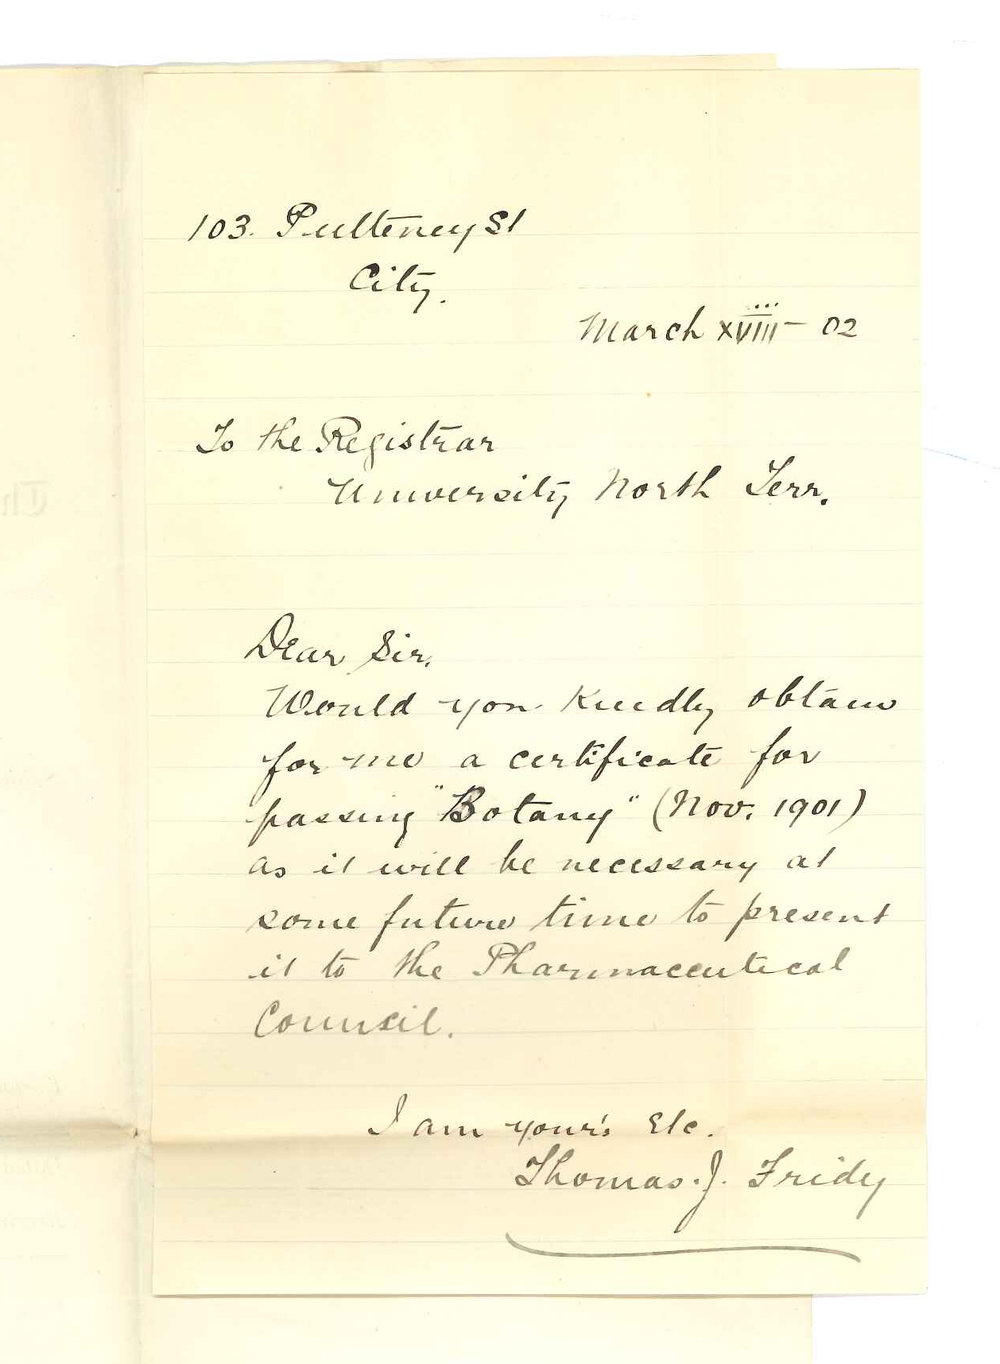 103. Pulteney St
City.
March XVIII – 02
To the Registrar
University North Terr.
Dear Sir.
Would you kindly obtain
for me a certificate for
passing "Botany" (Nov. 1901)
as it will be necessary at
some future time to present
it to the Pharmaceutical
Council.
I am your's Etc.
Thomas. J. Fridy